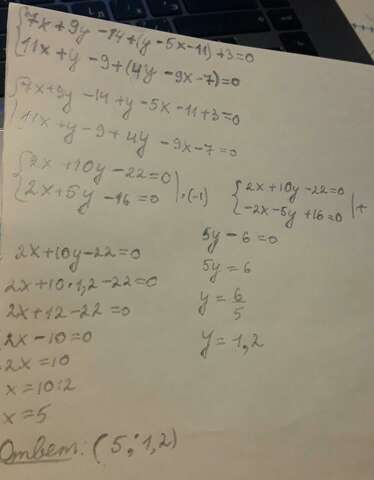 {7x+9y-14+(y-5x-11)+3=0
11x+y-9+(4y-9x-7)=0
{7x+9y-14+y-5x-11+3=0
11x+y-9+4y-9x-7=0
{2x+10y-22=0
2x+5y-16=0 |·(-1)
{2x+10y-22=0
-2x-5y+16=0 |+
5y-6=0
5y=6
y=6/5
y=1,2
2x+10y-22=0
2x+10·1,2-22=0
2x+12-22=0
2x-10=0
2x=10
x=10:2
x=5
Ответ: (5;1,2)